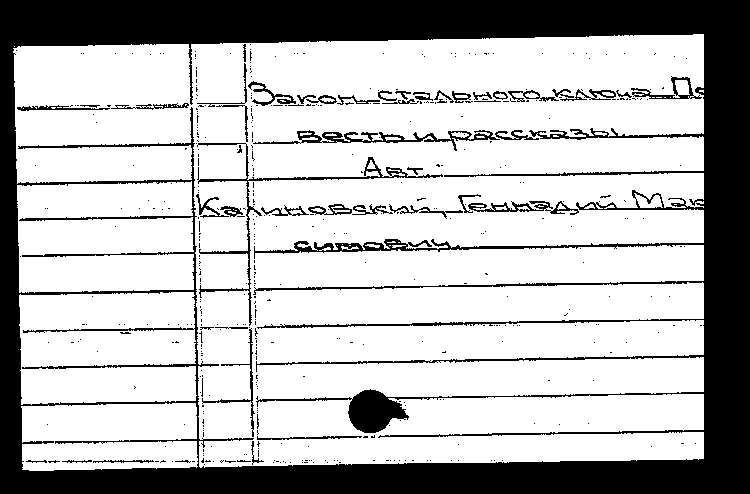 Закон стального ключа. По
весть и рассказы.
Авт.:
Калиновский, Геннадий Мак
симович.